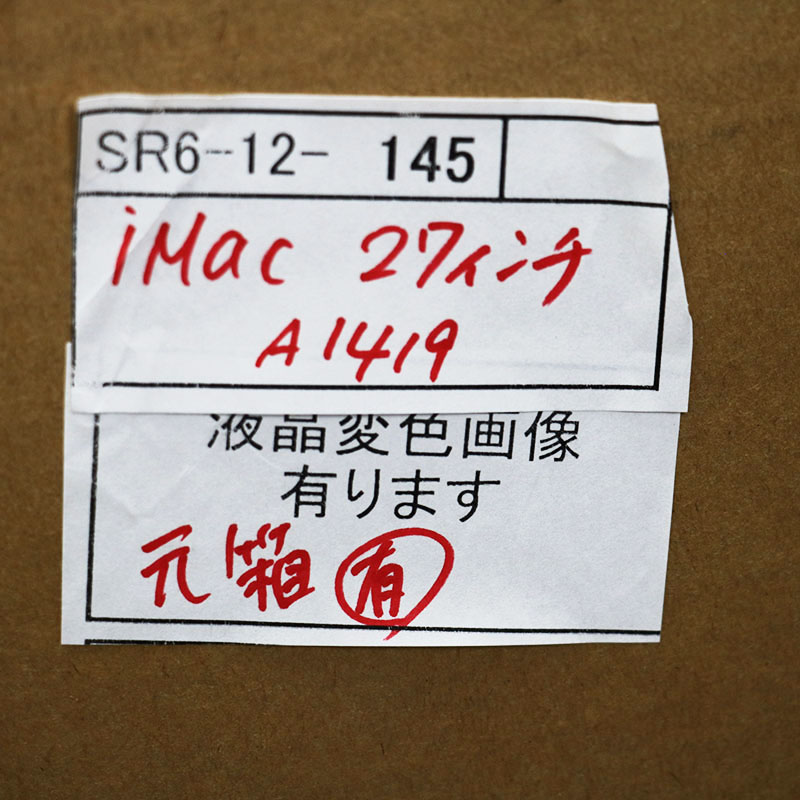 SR6-12- 145
iMac 27インチ
A1419
液晶変色画像
有ります
元箱 有